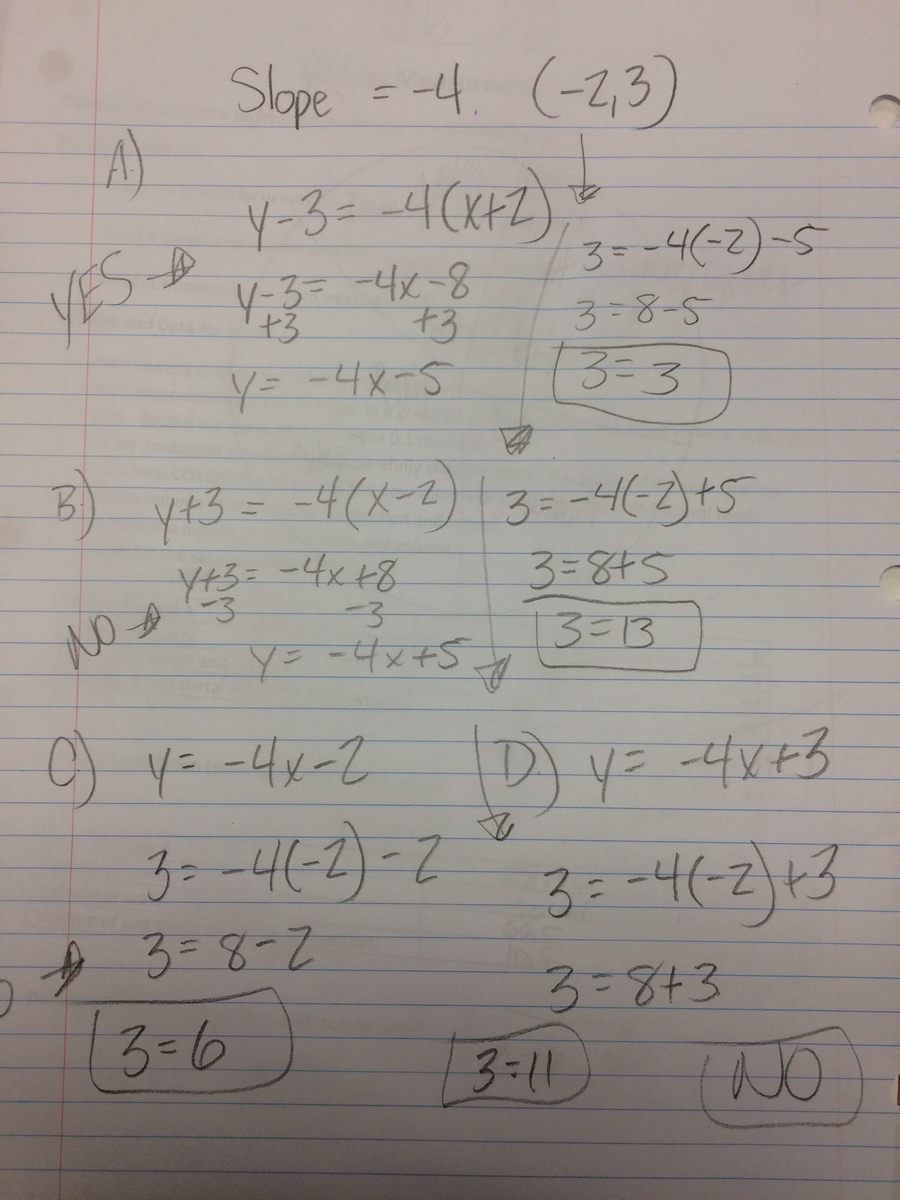 Slope = -4. (-2,3)
A)
y-3 = -4(x+2)
YES →
y-3 = -4x-8
+3 +3
y = -4x-5
3 = -4(-2)-5
3 = 8-5
3 = 3
B)
y+3 = -4(x-2)
y+3 = -4x+8
-3 -3
NO →
y = -4x+5
3 = -4(-2)+5
3 = 8+5
3 = 13
C) y = -4x-2
3 = -4(-2)-2
3 = 8-2
3 = 6
D.) y = -4x+3
3 = -4(-2)+3
3 = 8+3
3 = 11
NO